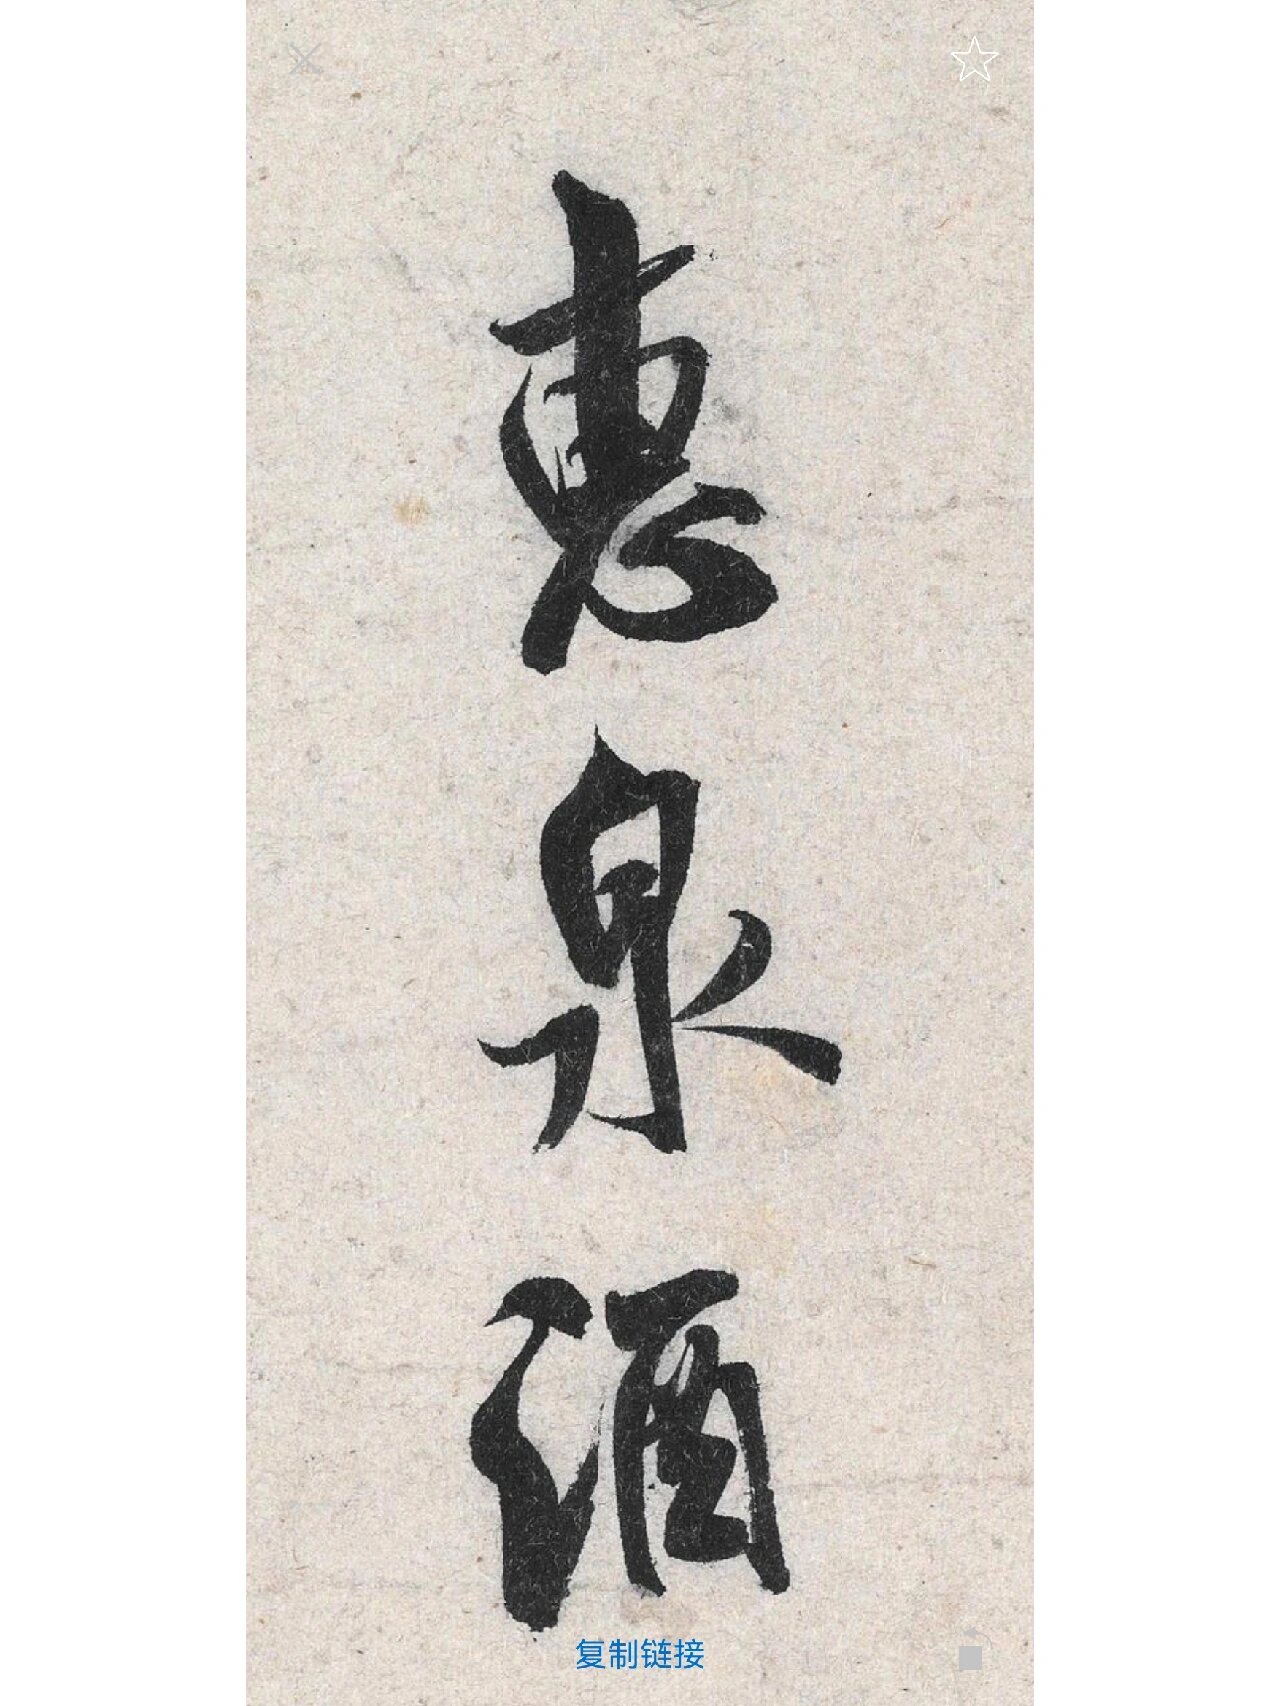 惠泉酒
复制链接